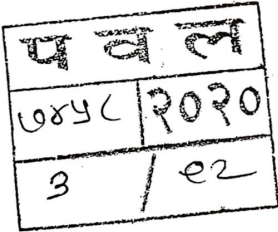 प व ल
७४५८ २०२०
३ / ९२